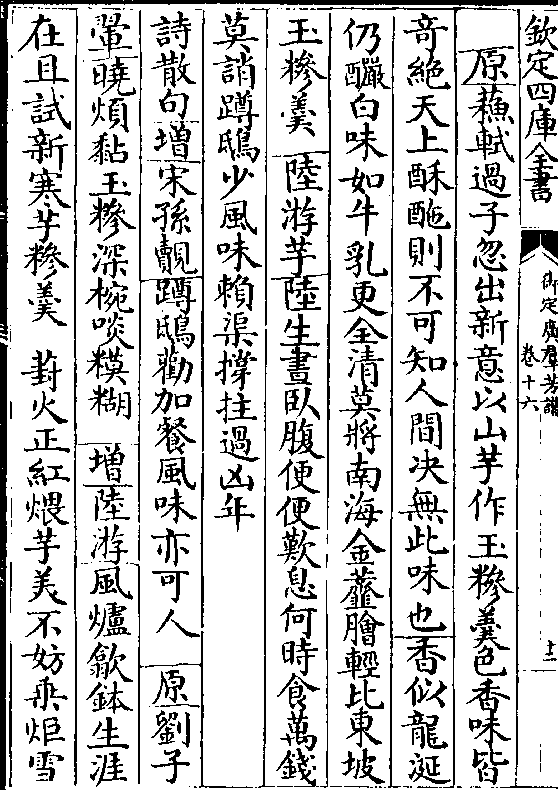 欽定四庫全書
御定廣羣芳譜
卷十六
十二
原蘇軾過子忽出新意以山芋作玉糝羹色香味皆
奇絶天上酥酏則不可知人間决無此味也香似龍涎
仍釅白味如牛乳更全清莫將南海金虀膾輕比東坡
玉糝羹 陸游芋陸生晝臥腹便便歎息何時食萬錢
莫誚蹲鴟少風味賴渠撑拄過凶年
詩散句增宋孫覿蹲鴟勸加餐風味亦可人 原劉子
翬曉煩黏玉糝深椀啖糢糊 增陸游風爐歙鉢生涯
在且試新寒芋糝羹 葑火正紅煨芋美不妨乗炬雪